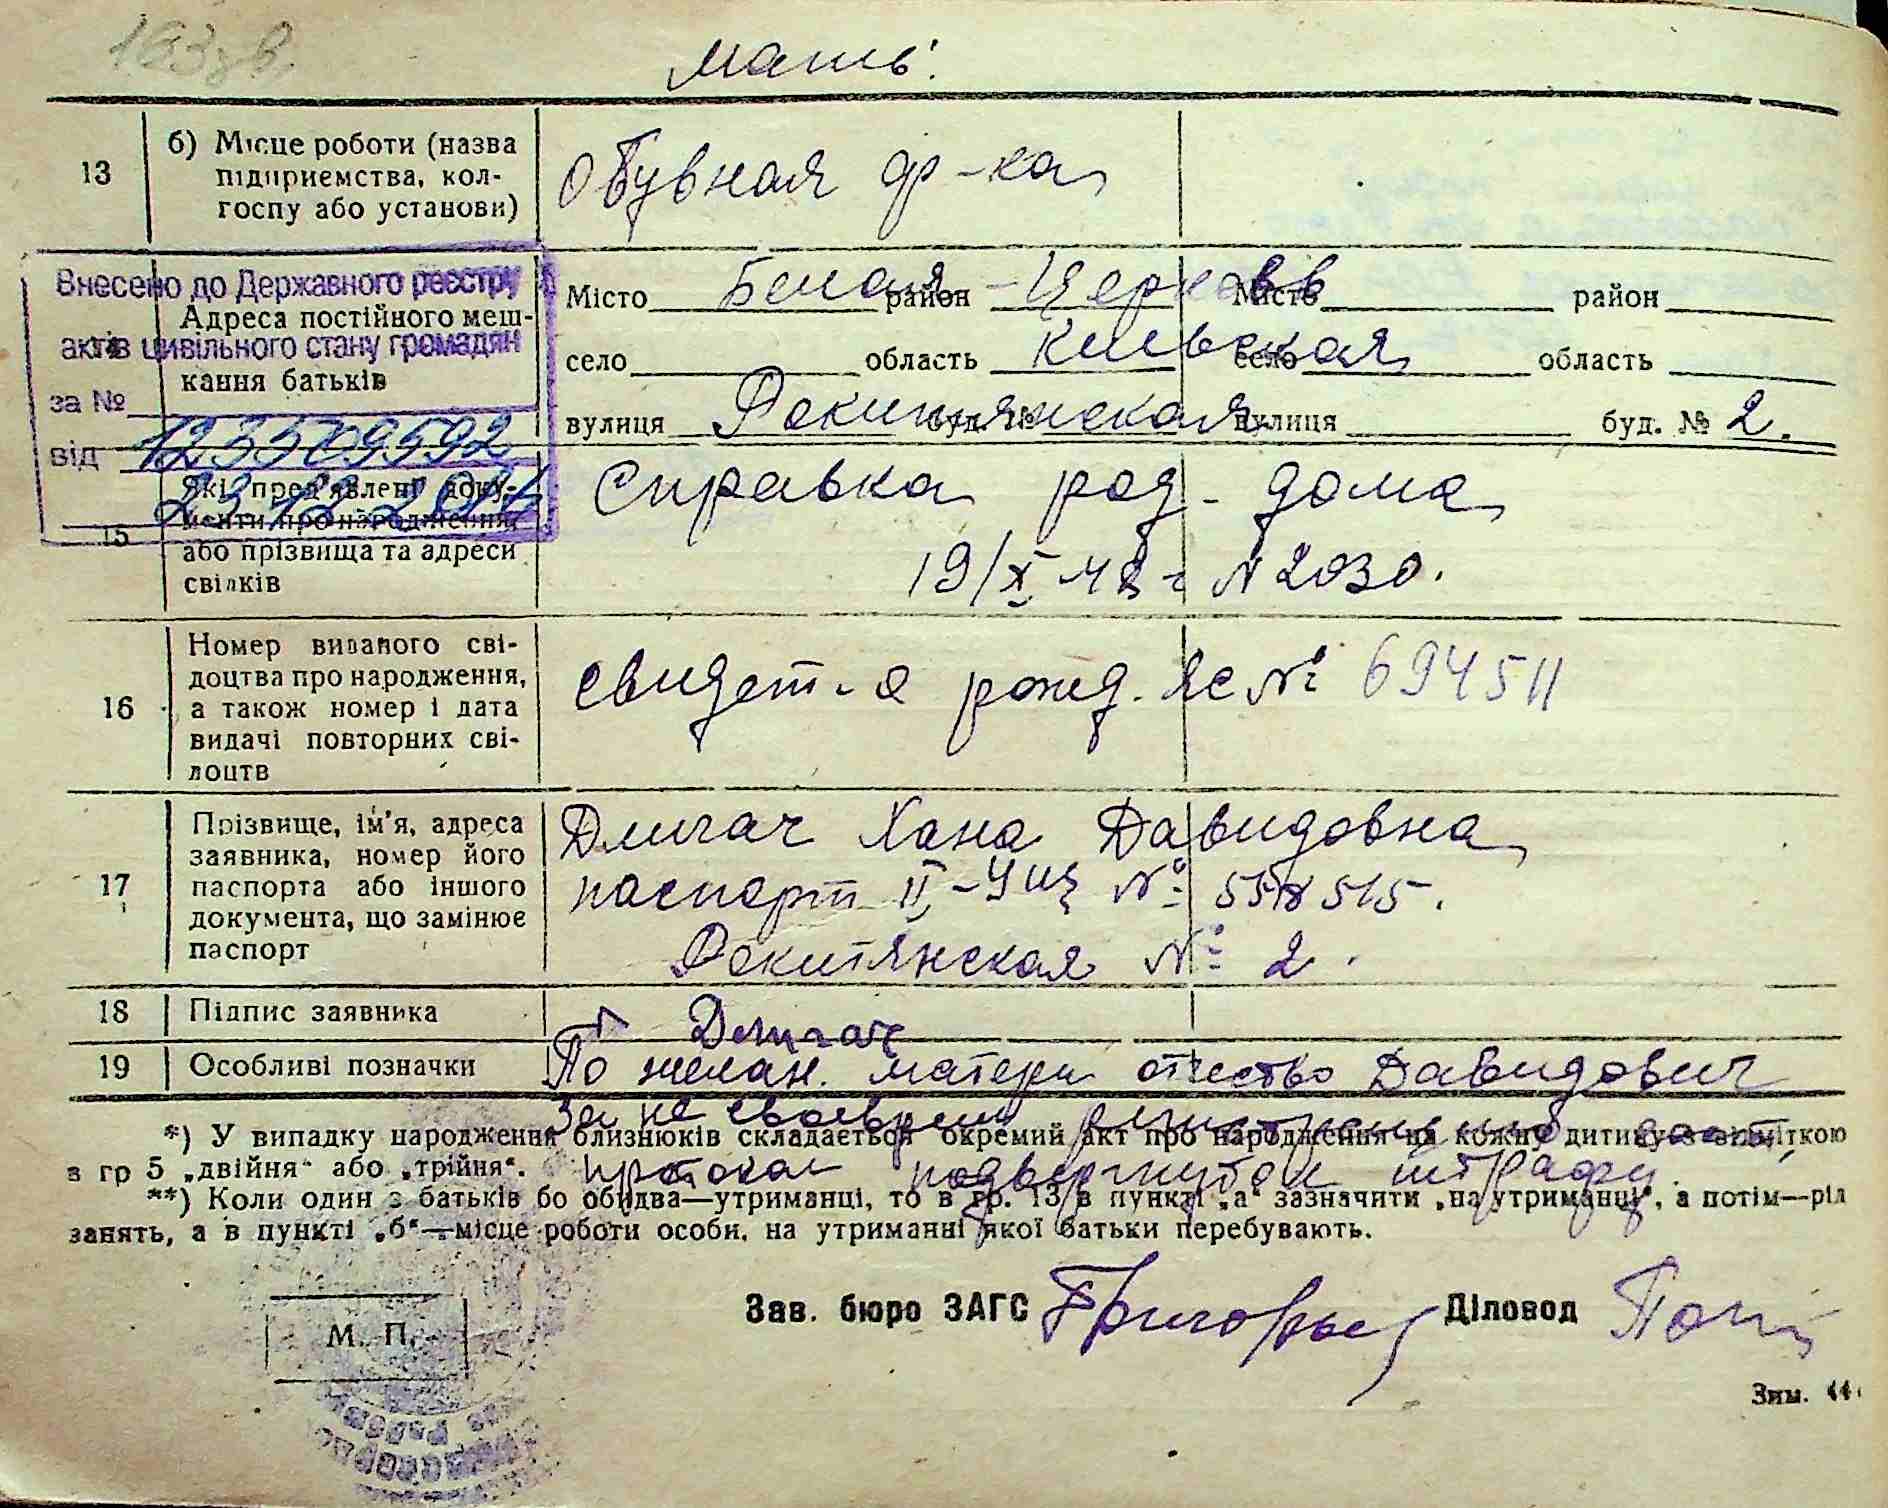 мать.
13
б) Місце роботи (назва
підприємства, кол-
госпу або установи)
Обувная ф-ка
Внесено до Державного реєстру
актів цивільного стану громадян
за № 1235709592
від 23 12
Адреса постійного меш-
кання батьків
Місто Белая-Церковь район Місто район
село область Киевская село область
вулиця Рокитянская буд. № вулиця буд. № 2.
15
Які пред'явлені доку-
менти про народження,
або прізвища та адреси
свідків
Справка род-дома
19/X-48 г N 2030.
16
Номер виданого сві-
доцтва про народження,
а також номер і дата
видачі повторних сві-
доцтв
свидет-о рожд. ЯС № 694511
17
Прізвище, ім'я, адреса
заявника, номер його
паспорта або іншого
документа, що замінює
паспорт
Длигач Хана Давидовна
паспорт II № 558515.
Рокитянская № 2.
18
Підпис заявника
Длигач
19
Особливі позначки
По желан. матери отчество Давидович
За не своеврем
протокол подвергнута штрафу
*) У випадку народження близнюків складається окремий акт про народження на кожну дитину з відміткою
з гр 5 „двійня“ або „трійня“.
**) Коли один з батьків бо обидва—утриманці, то в гр. 13 в пункті „а“ зазначити „на утриманці“, а потім—рід
занять, а в пункті „б“—місце роботи особи, на утриманні якої батьки перебувають.
М. П.
Зав. бюро ЗАГС
Діловод
Зим.